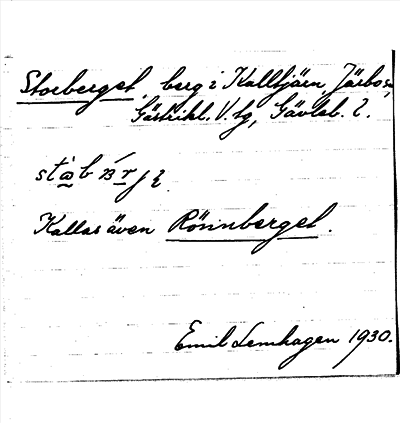 Storberget, berg i Kalltjärn, Järbo sn,
Gästrikl. V. tg, Gävleb. l.
Kallas även Rönnberget.
Emil Lemhagen 1930.